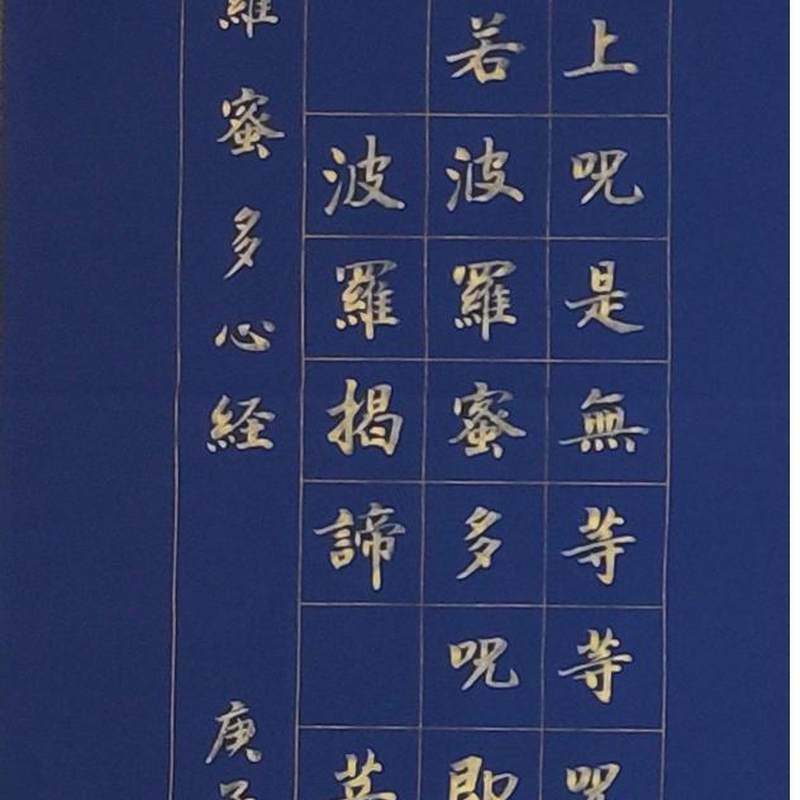 上呪是無等等呪
若波羅蜜多呪即
波羅揭諦 菩
羅蜜多心経 庚